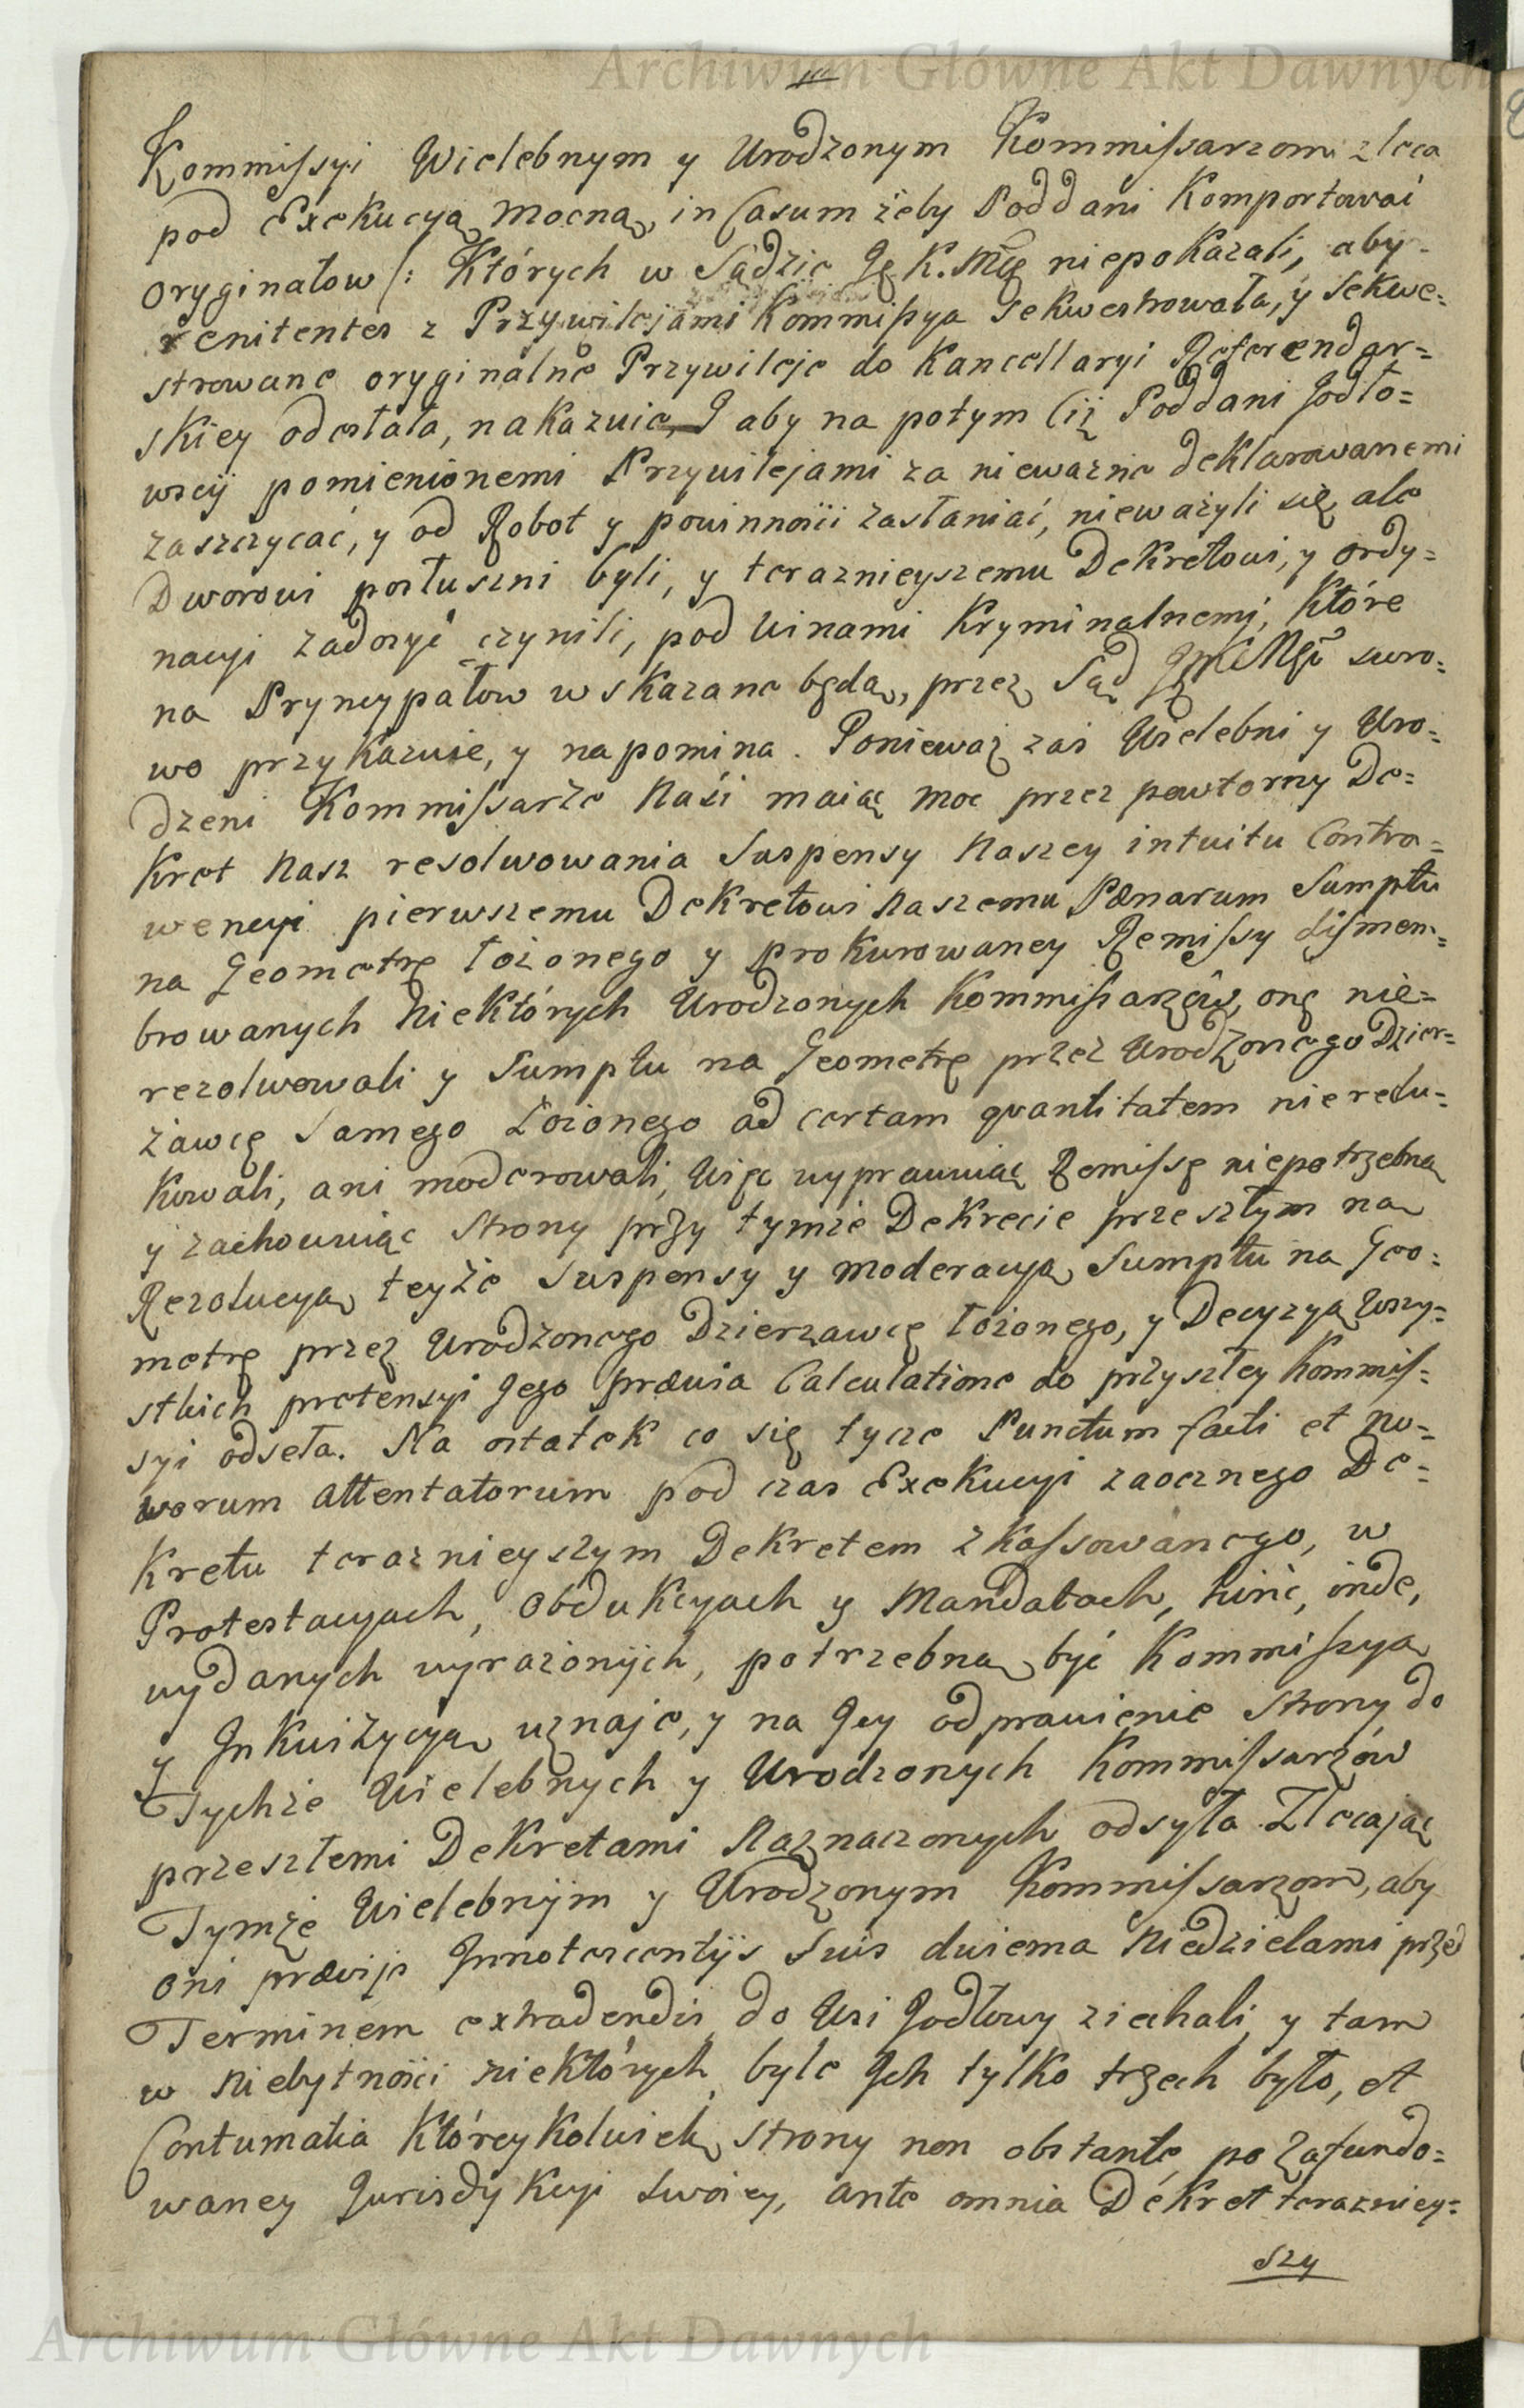 Archiwum Główne Akt Dawnych
Kommissyi Wielebnym y Urodzonym Kommissarzom zleca
pod Exekucyą mocną, in Casum żeby Poddani Komportować
oryginałow /: Których w Sądzie Ję K. Mćę niepokazali, aby
renitentes z Przywilejami Kommissya sekwestrowała, y sekwe=
strowane oryginalne Przywileje do Kancellaryi Referendar=
skiey odesłała, nakazuie, J aby na potym Ciż Poddani Jodło=
wscy pomienionemi Przywilejami za nieważne deklarowanemi
zaszczycać, y od Robot y powinności zasłaniać, nieważyli się ale
Dworowi posłuszni byli, y teraznieyszemu Dekretowi, y ordy=
nacyi zadosyć czynili, pod Winami Kryminalnemi, Które
na Pryncypałow wskazane będą, przez Sąd suro=
wo przykazuie, y napomina. Ponieważ zaś Wielebni y Uro=
dzeni Kommissarze Nasi maiąc moc przez powtorny De=
kret Nasz resolwowania Suspensy Naszey intuitu Contra=
wencyi pierwszemu Dekretowi Naszemu Pænarum Sumptu
na Geometrę łożonego y prokurowaney Remissy dismem=
browanych Niektórych Urodzonych Kommissarzów, onę nie=
rezolwowali y Sumptu na Geometrę przez Urodzonego Dzier=
żawcę Samego Łożonego ad certam quantitatem nieredu=
kowali, ani moderowali, Więc uyprawuiąc Remissę niepotrzebną
y zachowuiąc Strony przy tymże Dekrecie przeszłym na
Rezolucyą teyże Suspensy y moderacyą Sumptu na Geo=
metrę przez Urodzonego Dzierzawcę łożonego, y Decyzyą Wszy=
stkich pretensyi Jego prævia Calculatione do przyszłey Kommis=
syi odseła. Na ostatek co się tycze Punctum facti et no=
worum attentatorum pod czas Exekucyi zaocznego De=
kretu teraznieyszym Dekretem zkassowanego, w
Protestacyach, Obdukcyach y Mandatach, hinc, inde,
uydanych uyrażonych, potrzebną być Kommissyą
y Jnkwizycyą uznaje, y na Jey odprawienie Strony do
Tychże Wielebnych y Urodzonych Kommissarzów
przeszłemi Dekretami Naznaczonych odsyła. Zlecając
Tymże Wielebnym y Urodzonym Kommissarzom, aby
oni prævijs Jnnotescentijs Suis dwiema Niedzielami przed
Terminem extradendis do Wsi Jodłowy ziechali, y tam
w Niebytności niektórych, byle Jch tylko trzech było, et
Contumatia Któreykolwiek Strony non obstante, po Zafundo=
waney Jurisdykcyi swoiey, ante omnia Dekret terazniey=
szy
Archiwum Główne Akt Dawnych